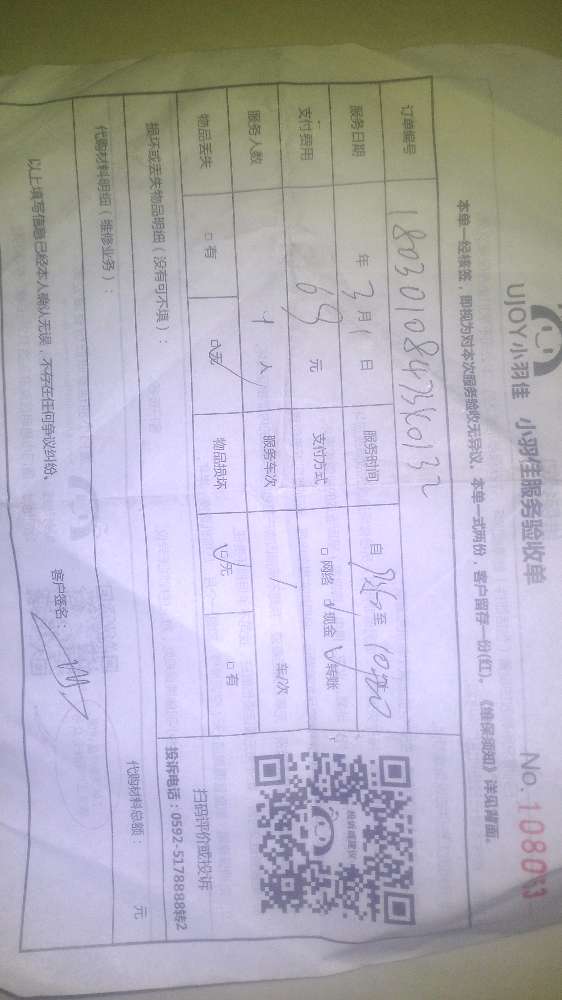 UJOY小羽佳 小羽佳服务验收单 No.1080
本单一经核签，即视为对本次服务验收无异议。本单一式两份，客户留存一份(红)。《维保须知》详见背面。
订单编号
服务日期 年 3 月 1 日 服务时间 自 至
支付费用 69 元 支付方式 □网络 □现金 □转账
服务人数 人 服务车次 / 车/次
物品丢失 □有 □无 物品损坏 □无 □有
扫码评价或投诉
投诉电话：0592-5178888转2
损坏或丢失物品明细（没有可不填）：
代购材料明细（维修业务）： 代购材料总额： 元
以上填写信息已经本人确认无误，不存在任何争议纠纷。
客户签名：